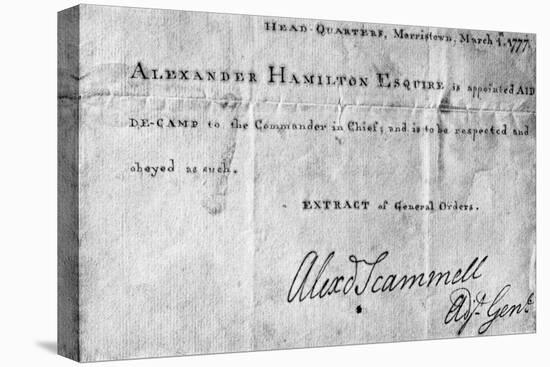 HEAD-QUARTERS, Morristown, March 1st. 1777.
ALEXANDER HAMILTON ESQUIRE is appointed AID
DE-CAMP to the Commander in Chief; and is to be respected and
obeyed as such.
EXTRACT of General Orders.
Alexd Scammell
Adjt. Genl.